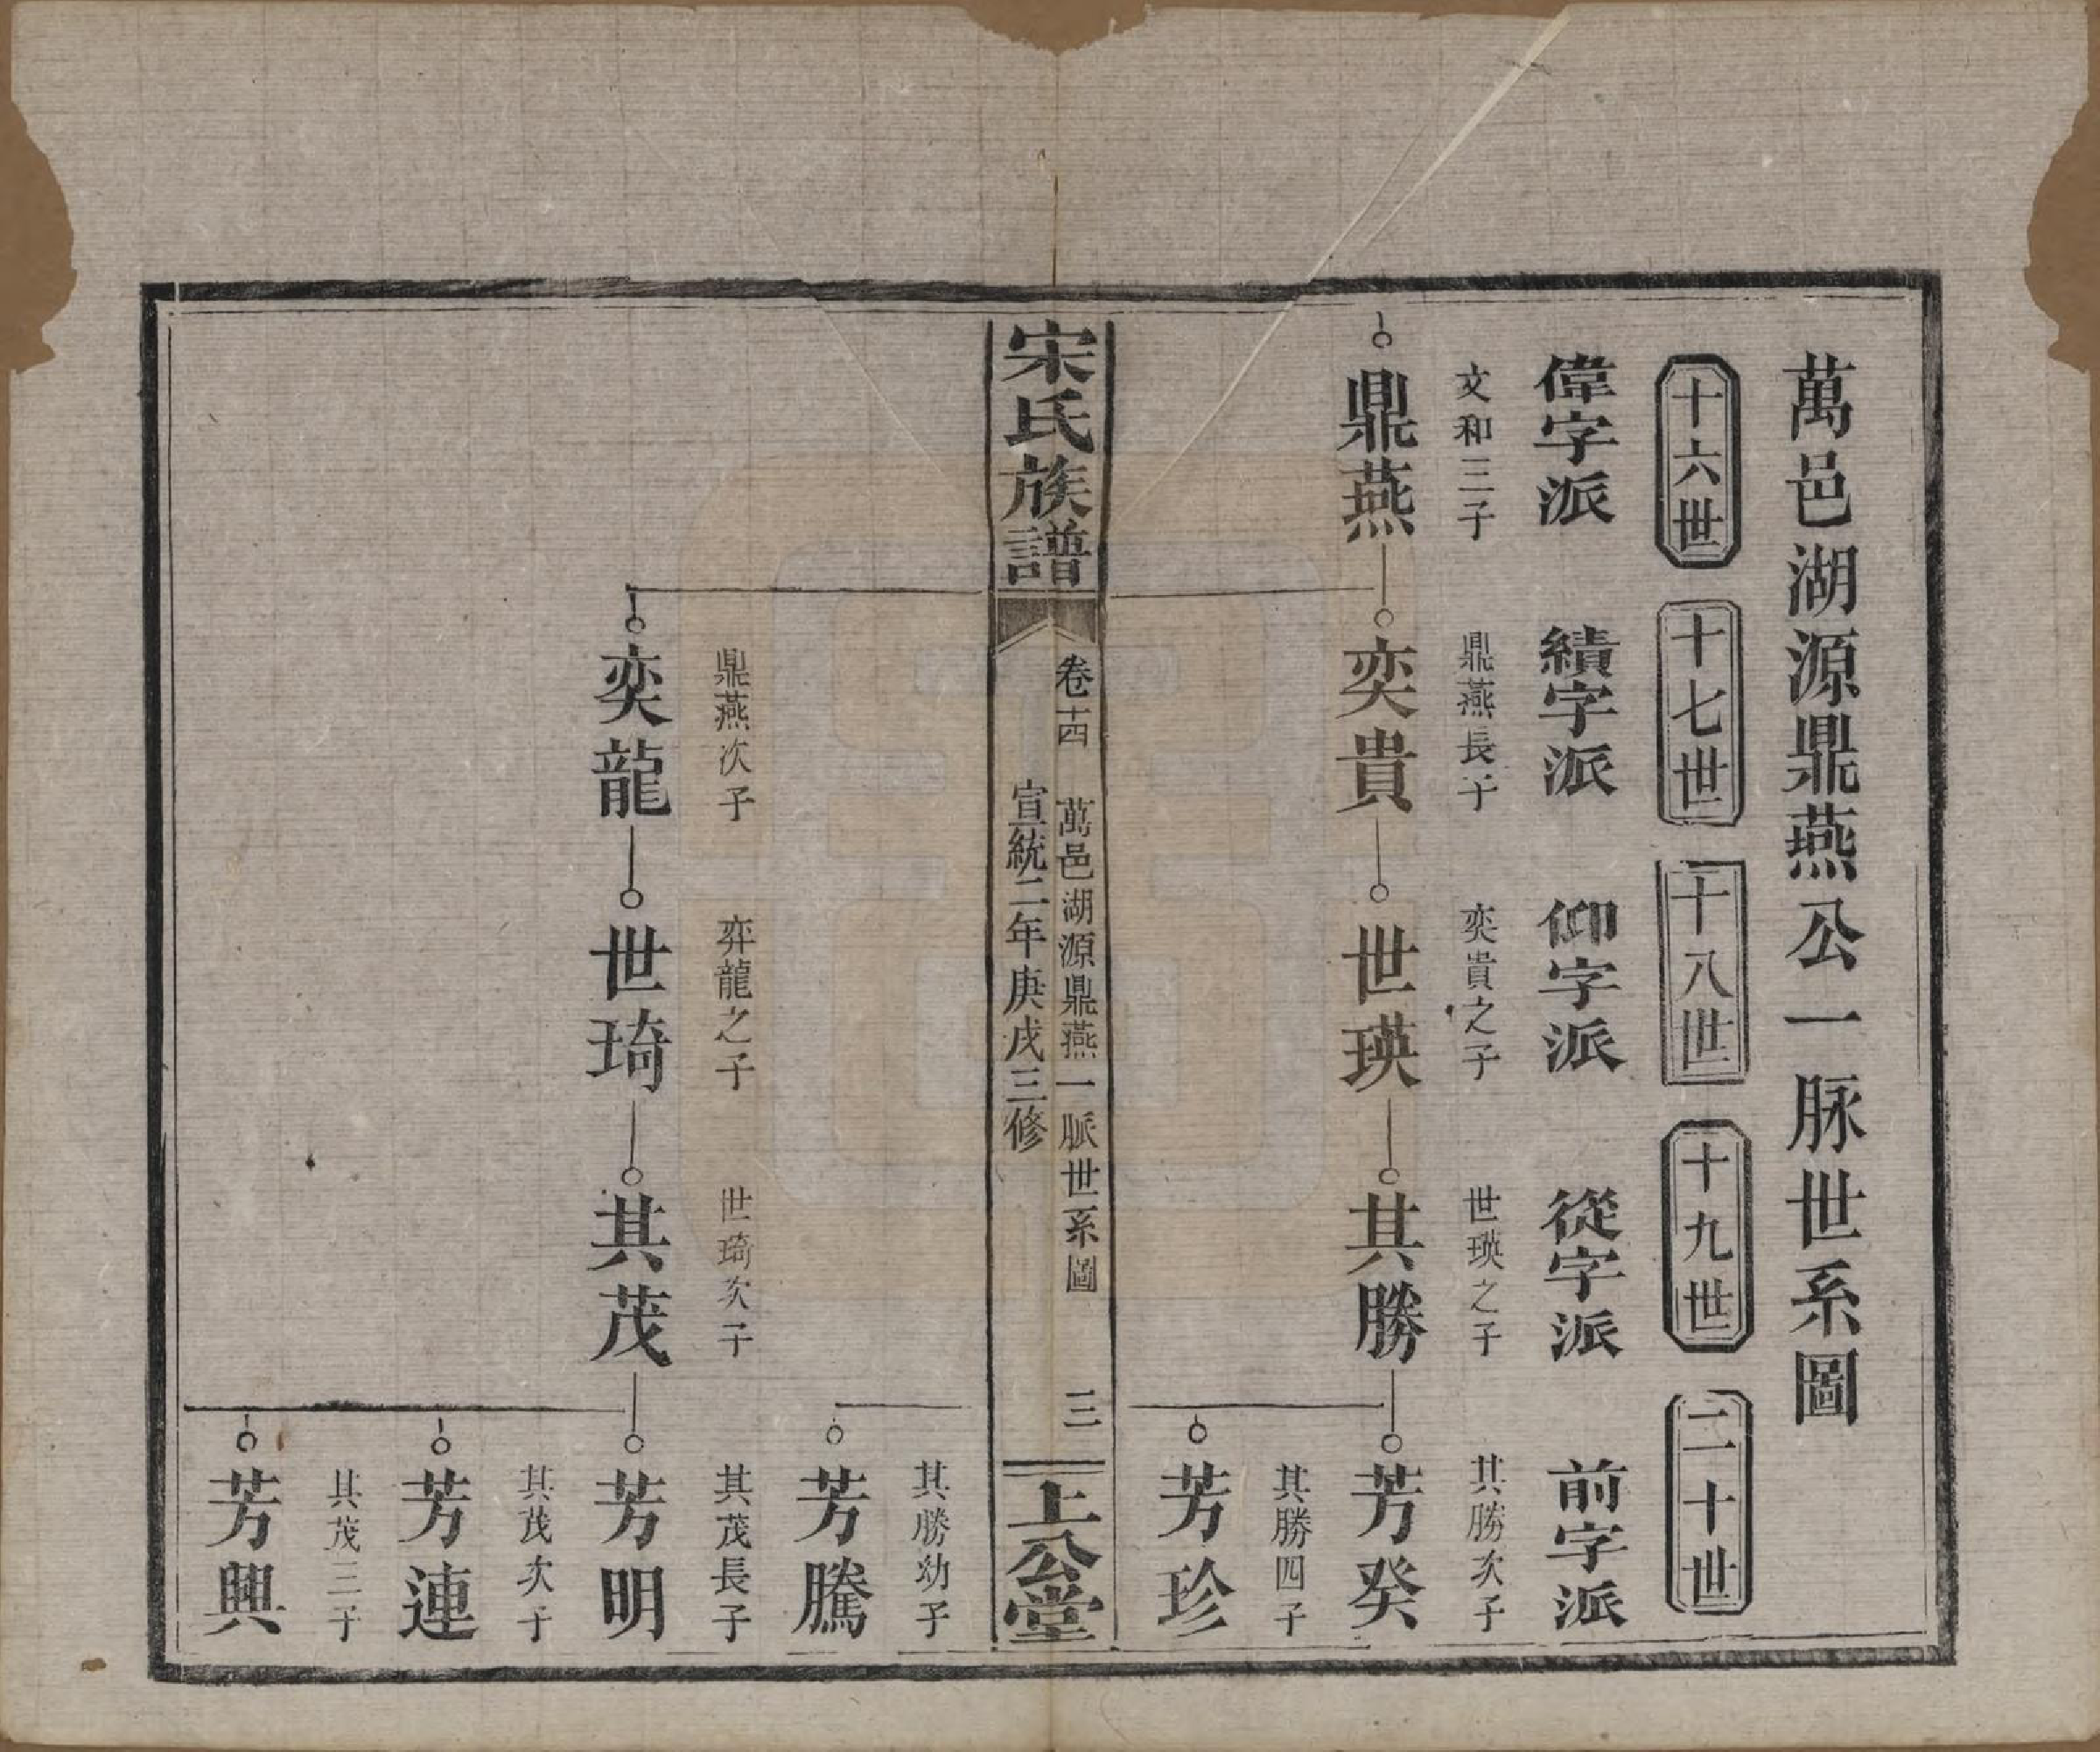 萬邑湖源鼎燕公一脉世系圖
十六世
十七世
十八世
十九世
二十世
偉字派
績字派
仰字派
從字派
前字派
文和三子
鼎燕長子
奕貴之子
世瑛之子
其勝次子
鼎燕
奕貴
世瑛
其勝
芳癸
其勝四子
芳珍
宋氏族譜
卷十四
萬邑湖源鼎燕一脈世系圖
三
宣統二年庚戌三修
上公堂
其勝幼子
芳騰
鼎燕次子
弈龍之子
世琦次子
其茂長子
奕龍
世琦
其茂
芳明
其茂次子
芳連
其茂三子
芳興